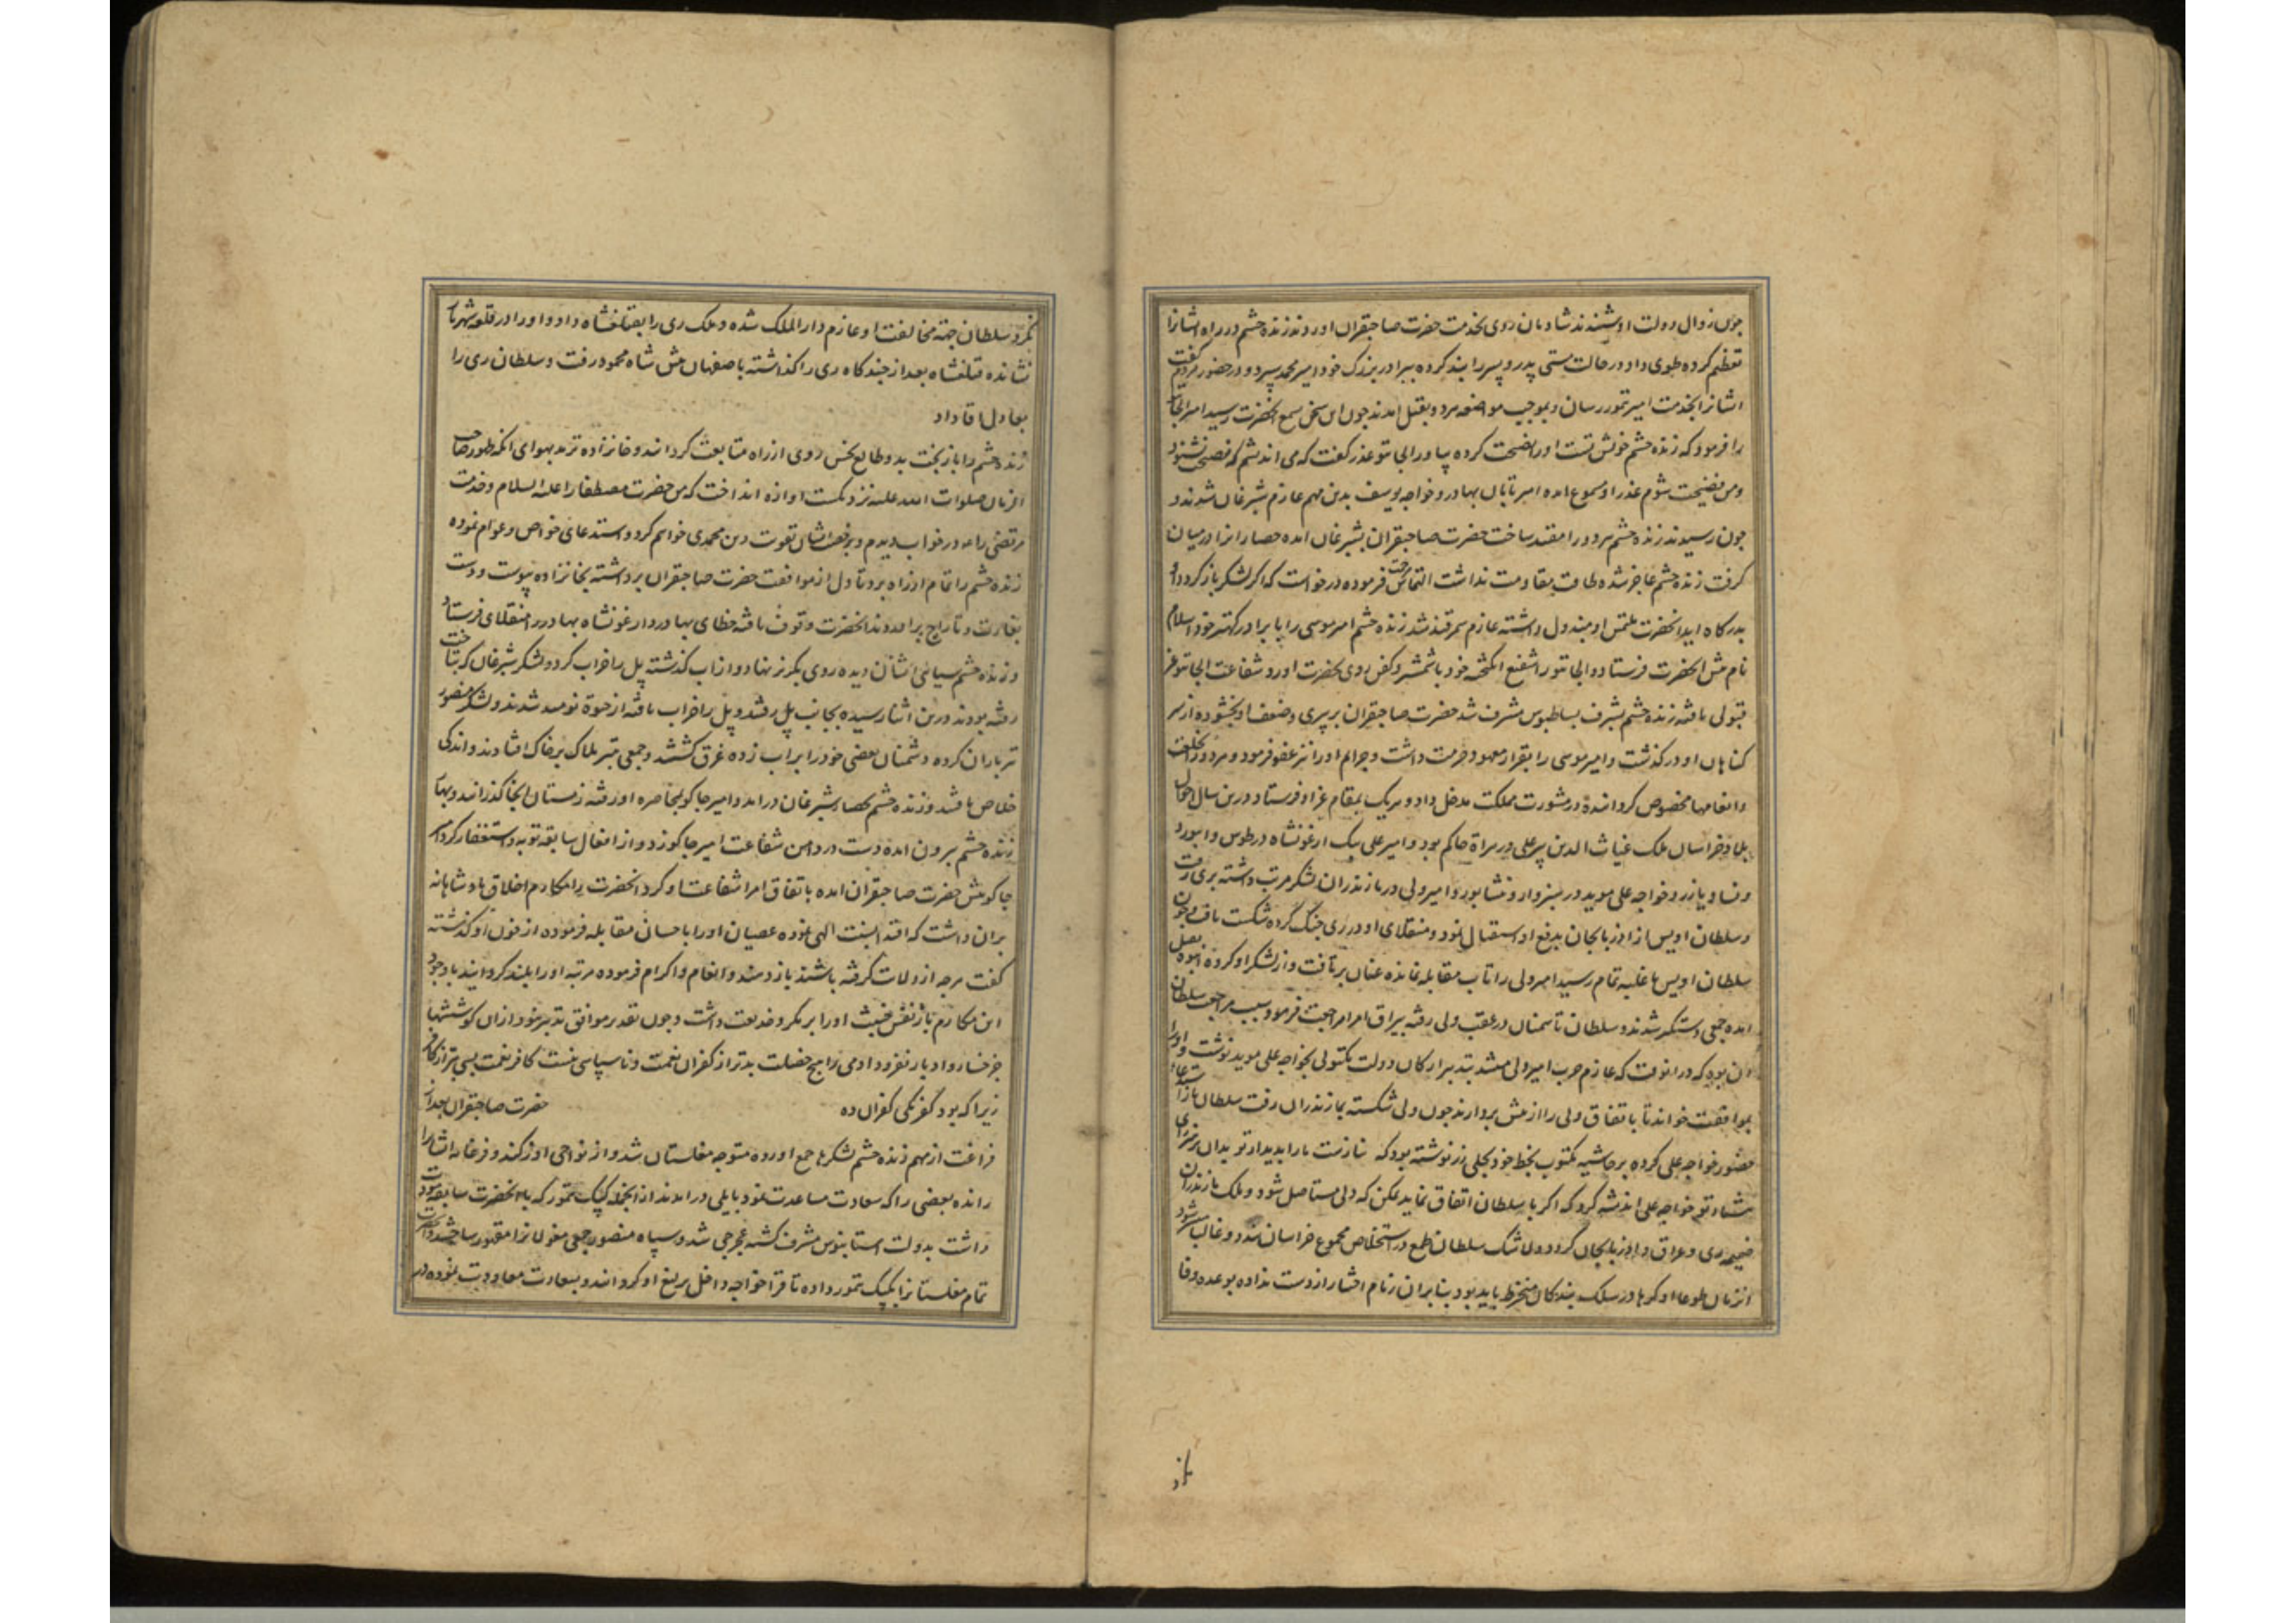 چون زوال دولت او شنیدند شادمان روی بخدمت حضرت صاحبقران اوردند زنده حشم در راه ایشانرا
تعظیم کرده طوی داد و در حالت مستی پدر و پسر را بند کرده ببرادر بزرک خود امیر محمد سپرد و در حضور مردم کفت
ایشانرا بخدمت امیر تیمور رسان و بموجب مواضعه هر دو بقتل امدند چون این سخن بسمع انحضرت رسید امیر الجایتو
را فرمود که زنده حشم خویش تست او را نصیحت کرده بیاور الجایتو عذر کفت که می اندیشم که نصیحت نشنود
ومن فضیحت شوم عذر او مسموع امده امیر تابان بهادر و خواجه یوسف بدین مهم عازم شبرغان شدند و
چون رسیدند زنده حشم هر دو را مقید ساخت حضرت صاحبقران بشبرغان امده حصار را در میان
کرفت زنده حشم عاجز شده طاقت مقاومت نداشت التماس فرموده درخواست که اکر لشکر باز کردد او
بدرکاه اید انحضرت ملتمس او مبذول داشته عازم سمرقند شد زنده حشم امیر موسی را با برادر کهتر خود اسلام
نام پیش انحضرت فرستاد و الجایتو را شفیع انکیخته خود با شمشیر و کفن روی بحضرت اورد و شفاعت الجایتو عز
قبولی یافته زنده حشم بشرف بساط بوس مشرف شد حضرت صاحبقران بر پیری و ضعف او بخشوده از سر
کناهان او درکذشت و امیر موسی را بقرار معهود حرمت داشت و جرایم او را نیز عفو فرمود و هر دو را بخلعت
وانعامها مخصوص کردانیده در مشورت مملکت مدخل داد و هریک بمقام عز او فرستاد و درین سال احوال
بلاد خراسان ملک غیاث الدین پیر علی در هراة حاکم بود و امیر علی بیک ارغونشاه در طوس و ابیورد
ونسا و یازر و خواجه علی موید در سبزوار و نشابور و امیر ولی در مازندران لشکر مرتب داشته بری رفت
وسلطان اویس از اذربایجان بدفع او استقبال نمود و منقلای او در ری جنک کرده شکست یافت و چون
سلطان اویس با غلبه تمام رسید امیر ولی را تاب مقابله نمانده عنان برتافت و از لشکر او کروه انبوه بقتل
امده جمعی دستکیر شدند و سلطان تا سمنان در عقب ولی رفته بیراق امرا مراجعت فرمود و سبب مراجعت سلطان
ان بود که در انوقت که عازم حرب امیر ولی میشد بتدبیر ارکان دولت مکتوبی بخواجه علی موید نوشت و او را
بموافقت خواند تا باتفاق ولی را از پیش بردارند چون ولی شکسته بمازندران رفت سلطان باز استدعاء
حضور خواجه علی کرده بر حاشیه مکتوب بخط خود بجلی زر نوشته بود که نیازیست ما را بدیدار تو بدان برتری
خواجه علی اندیشه کرد که اکر با سلطان اتفاق نماید ممکن که ولی مستاصل شود و ملک مازندران
ضمیمه ری و عراق و اذربایجان کردد و بی شک سلطان طمع در استخلاص مجموع خراسان بندد و غالب شود
انزمان طوعا او کرها در سلک بندکان منخرط باید بود بنابران زمام اختیار از دست نداده بوعده وفا
نکرد سلطان جهة مخالفت او عازم دار الملک شده و ملک ری را بقتلغشاه داد و او را در قلعه شهریار
نشانده قتلغشاه بعد از چند کاه ری را کذاشته باصفهان پیش شاه محمود رفت و سلطان ری را
بعادل اقا داد
زنده حشم را باز بخت بد و طالع نحس روی از راه متابعت کردانید و خانزاده ترمد بهوای انکه ظهور صاحب
الزمان صلوات الله علیه نزدیکست اوازه انداخت که من حضرت مصطفا را علیه السلام و خدمت
مرتضی را در خواب دیدم و برخصت ایشان تقویت دین محمدی خواهم کرد و استدعای خواص و عوام نموده
زنده حشم را تمام از راه برد تا دل از موافقت حضرت صاحبقران برداشته بخانزاده پیوست و دست
بغارت و تاراج براوردند انحضرت وقوف یافته خطای بهادر و ارغونشاه بهادر را منقلای فرستاد
و زنده حشم سیاهی ایشان دیده روی بکریز نهاد و از اب کذشته پل را خراب کرد و لشکر شبرغان که بتاخت
رفته بودند درین اثنا رسیده بجانب پل رفتند و پل را خراب یافته از حیوة نومید شدند و لشکر منصور
تیر باران کرده دشمنان بعضی خود را بر اب زده غرق کشتند و جمعی بتیر هلاک بر خاک افتادند و اندکی
خلاص یافتند و زنده حشم بحصار شبرغان درامد و امیر جاکو بمحاصره او رفته زمستان انجا کذرانید و بهار
زنده حشم بیرون امده دست در دامن شفاعت امیر جاکو زد و از افعال سابقه توبه و استغفار کرد امیر
جاکو پیش حضرت صاحبقران امده باتفاق امرا شفاعت او کرد انحضرت را مکارم اخلاق پادشاهانه
بران داشت که اقتدا بسنت الهی نموده عصیان او را باحسان مقابله فرموده از خون او کذشته
کفت هرچه از ولایات کرفته باشند باز دهند و انعام و اکرام فرموده مرتبه او را بلند کردانید با وجود
این مکارم باز نفس خبیث او را بر مکر و خدیعت داشت و چون تقدیر موافق تدبیر نبود ازان کوششها
جز خسار و ادبار نفزود ادمی را هیچ خصلت بدتر از کفران نعمت و ناسپاسی نیست کافر نعمت بسی بتر از کافر
زیرا که بود کفر یکی کفران ده حضرت صاحبقران بعد از
فراغت از مهم زنده حشم لشکرها جمع اورده متوجه مغلستان شد و از نواحی اوزکند و فرغانه ایشانرا
رانده بعضی را که سعادت مساعدت نمود بایلی درامدند از انجمله کپک تیمور که با انحضرت سابقه
داشت بدولت استانبوس مشرف کشته غجرجی شد و سپاه منصور جمعی مغولانرا مقهور ساختند و حضرت
تمام مغلستانرا بکپک تیمور داده تا قرا خواجه داخل یرلیغ او کردانید و بسعادت معاودت نموده در